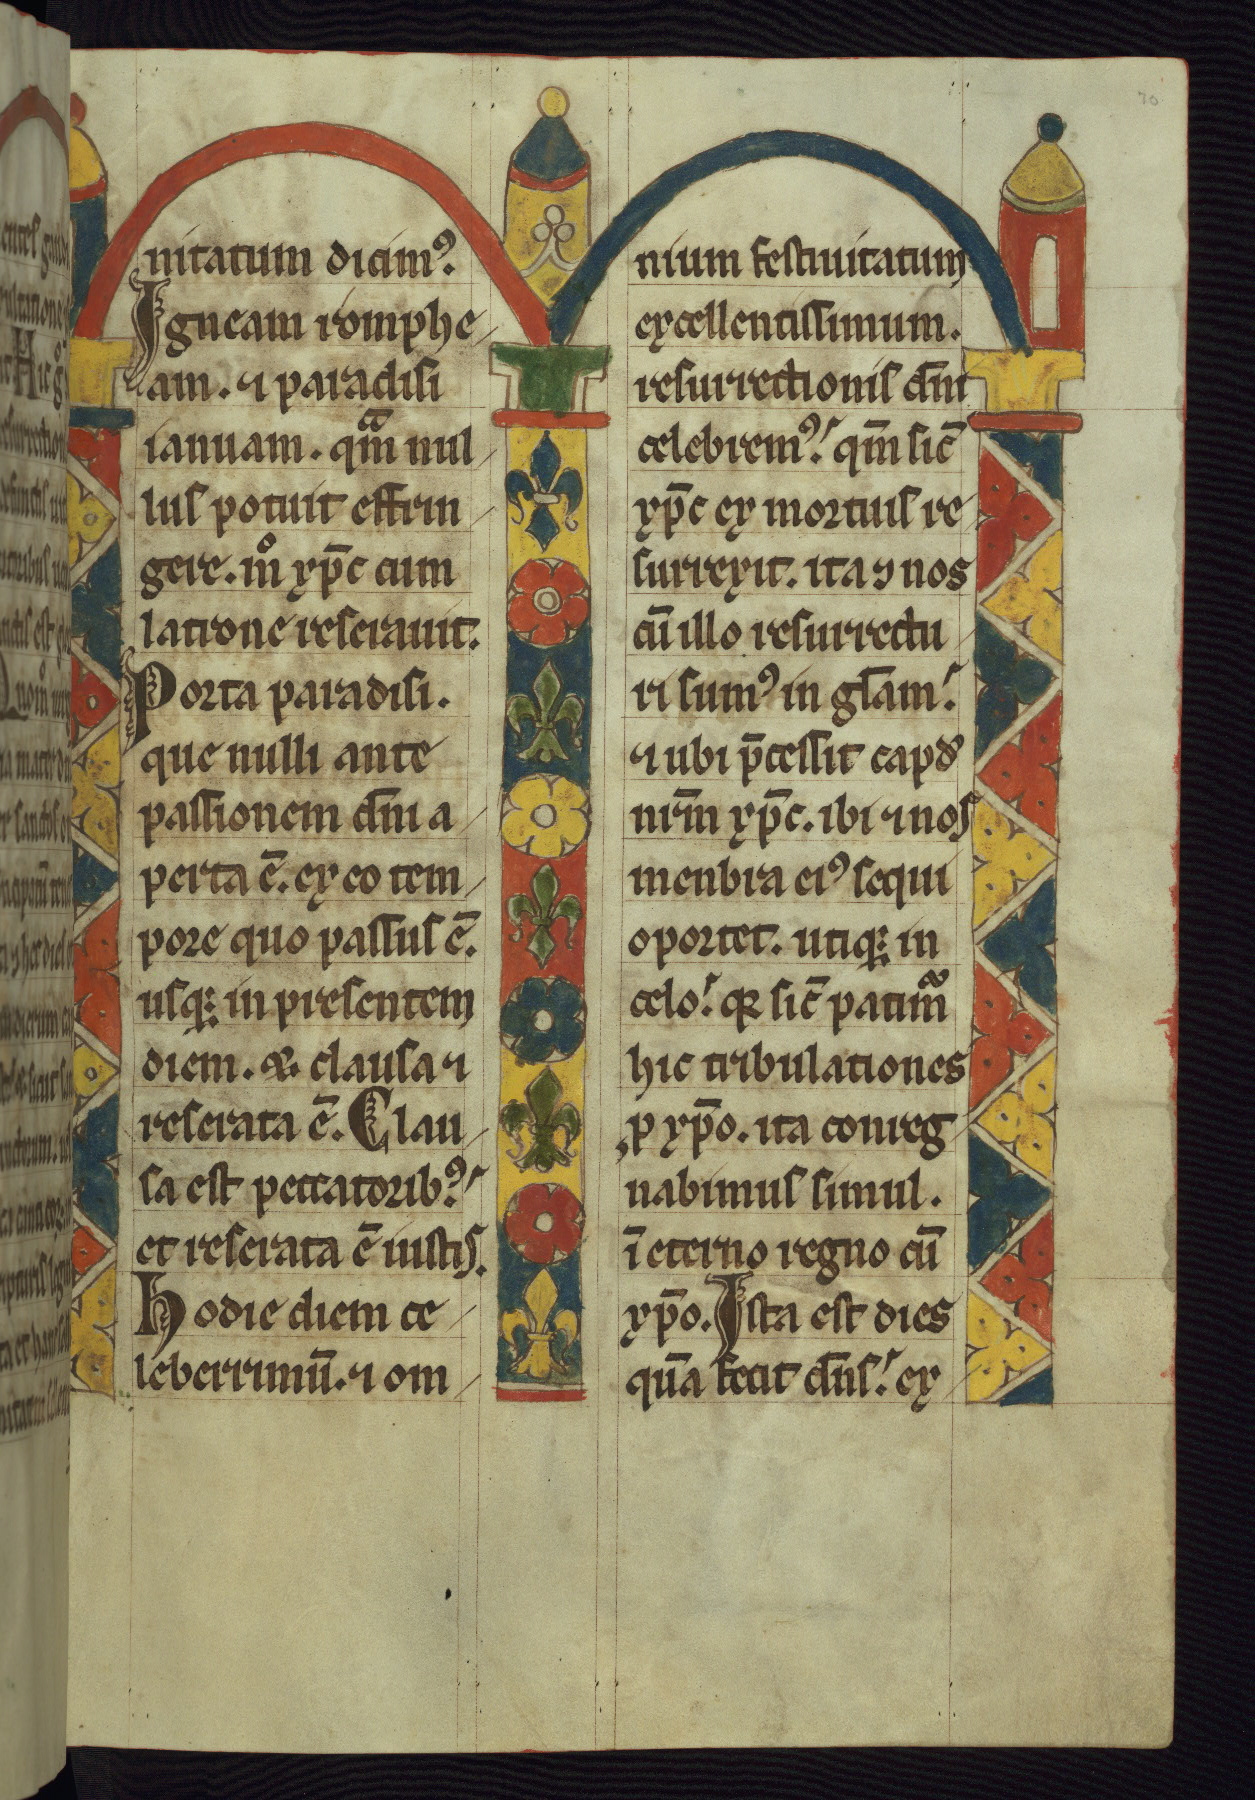 nitatum dicimꝰ.
Igneam romphe
am. ⁊ paradisi
ianuam. qᷓm nul
lus potuit effrin
gere. mͦ xp̄c cum
latrone reserauit.
Porta paradisi.
que nulli ante
passionem dn̄i a
perta ē. ex eo tem
pore quo passus ē.
usqꝫ in presentem
diem. ⁊ clausa ⁊
reserata ē. Clau
sa est peccatoribꝰ.
et reserata ē iustis.
Hodie diem ce
leberrimū. ⁊ om
nium festiuitatum
excellentissimum.
resurrectionis dn̄i
celebremꝰ. qm̄ sic̄
xp̄c ex mortuis re
surrexit. ita ⁊ nos
cū illo resurrectu
ri sumꝰ in gl̄am.
⁊ ubi p̄cessit capđ
nr̄m xp̄c. ibi ⁊ nos
menbra eiꝰ sequi
oportet. utiqꝫ in
celo. sic̄ patim̄
hic tribulationes
ꝓ xp̄o. ita conreg
nabimus simul.
ī eterno regno cū
xp̄o. Ista est dies
quā fecit dn̄s. ex
70